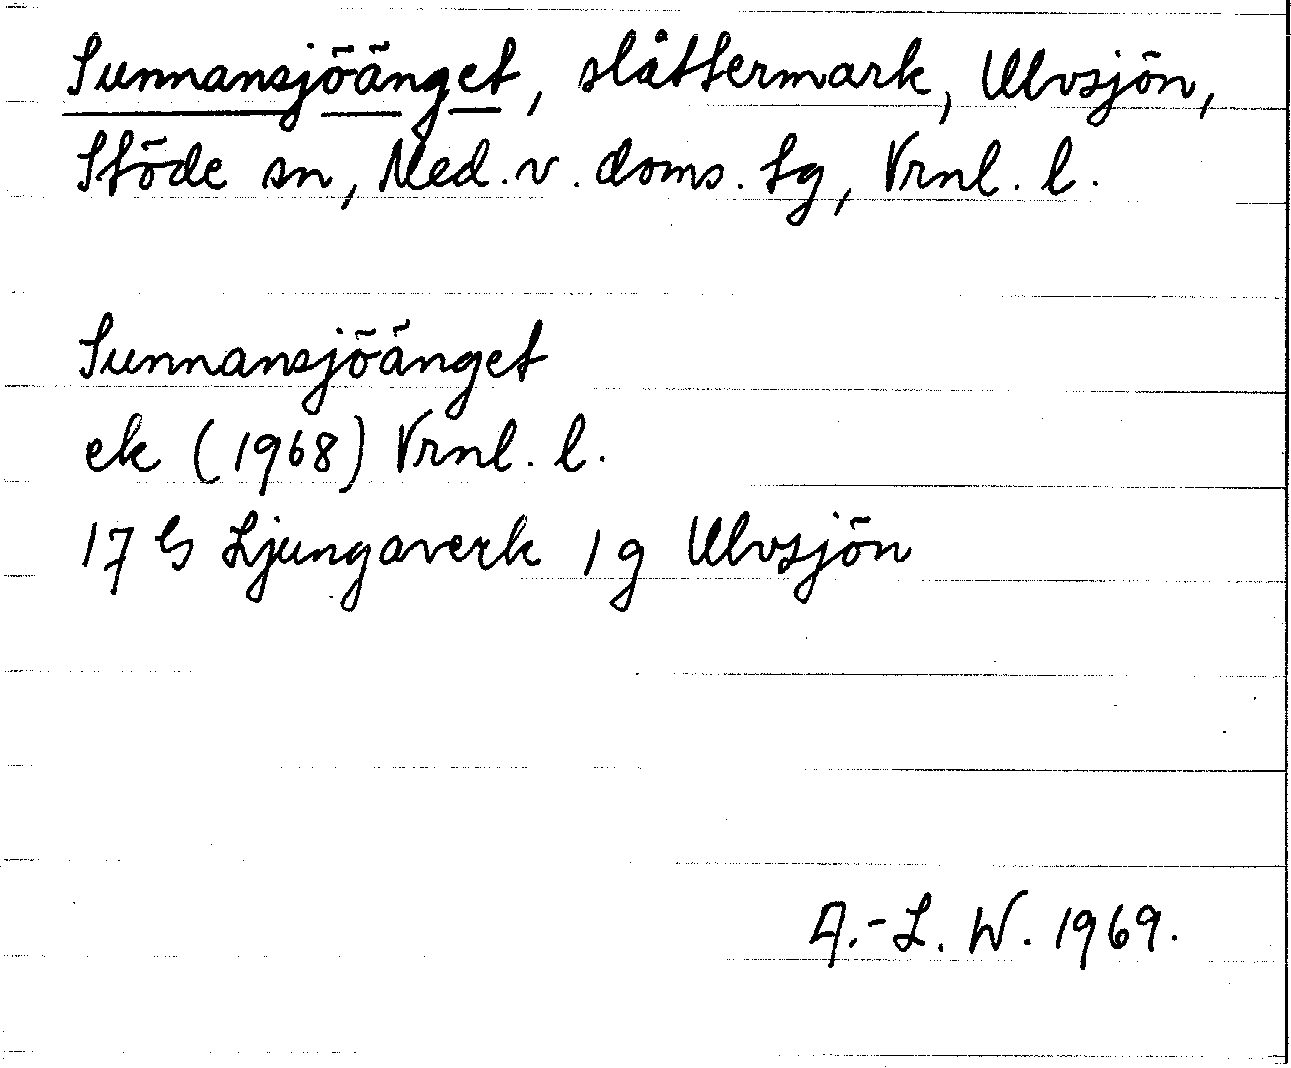 Sunnansjöänget, slåttermark, Ulvsjön,
Stöde sn, Med. v. doms. tg, Vrnl. l.
Sunnansjöänget
ek (1968) Vrnl. l.
17 G Ljungaverk 1 g Ulvsjön
A.-L. W. 1969.